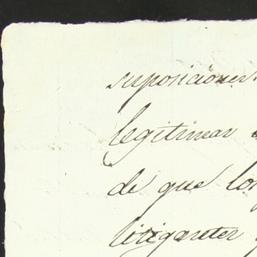 suposiciones
legitimar
de que los
litigantes